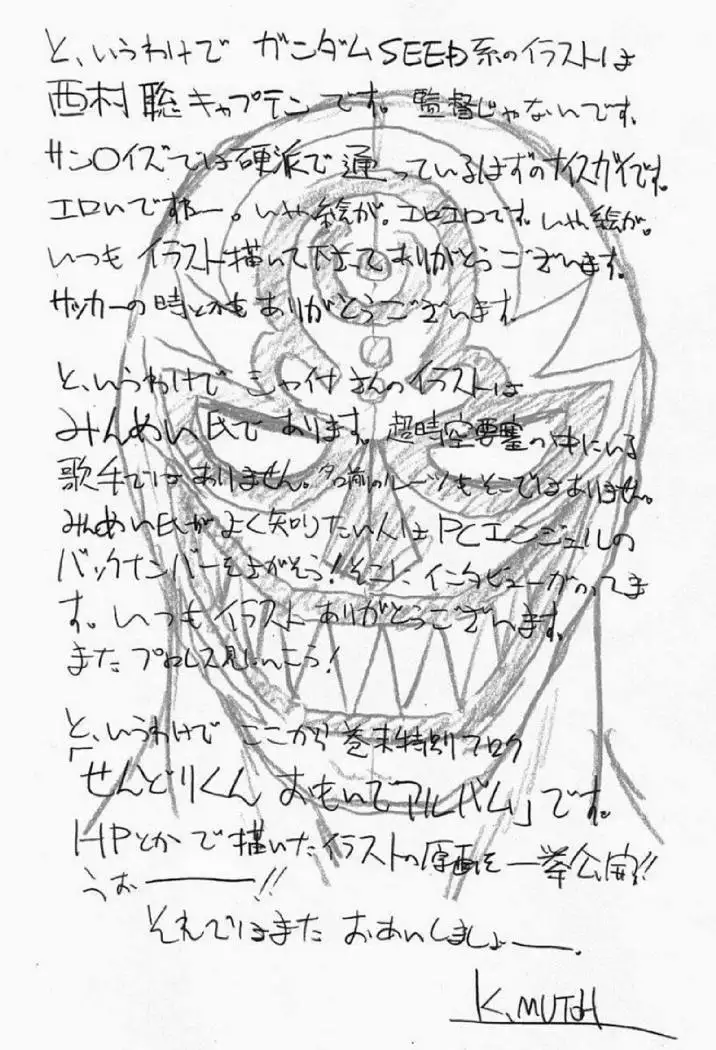 と、いうわけで ガンダムSEED系のイラストは
西村 聡キャプテンです。監督じゃないです。
サン〇イズでは硬派で通っているはずのナイスガイです。
エロいですねー。いや絵が。エロエロです。いや絵が。
いつも イラスト描いて下さって ありがとうございます。
サッカーの時とかも ありがとうございます。
と、いうわけで さんのイラストは
みんめい氏で あります。超時空要塞の中にいる
歌手ではありません。名前のルーツもそこではありません。
みんめい氏がよく知りたい人は PCエンジェルの
バックナンバーをさがそう!そこに、インタビューがのってま
す。いつも イラスト ありがとうございます。
また プロレス見にいこう!
と、いうわけで ここから 巻末特別
「せんどりくん おもいでアルバム」です。
HPとかで描いたイラストの原画を 一挙公開!!
うおーーー!!
それではまた おあいしましょー。
K.MUTOH